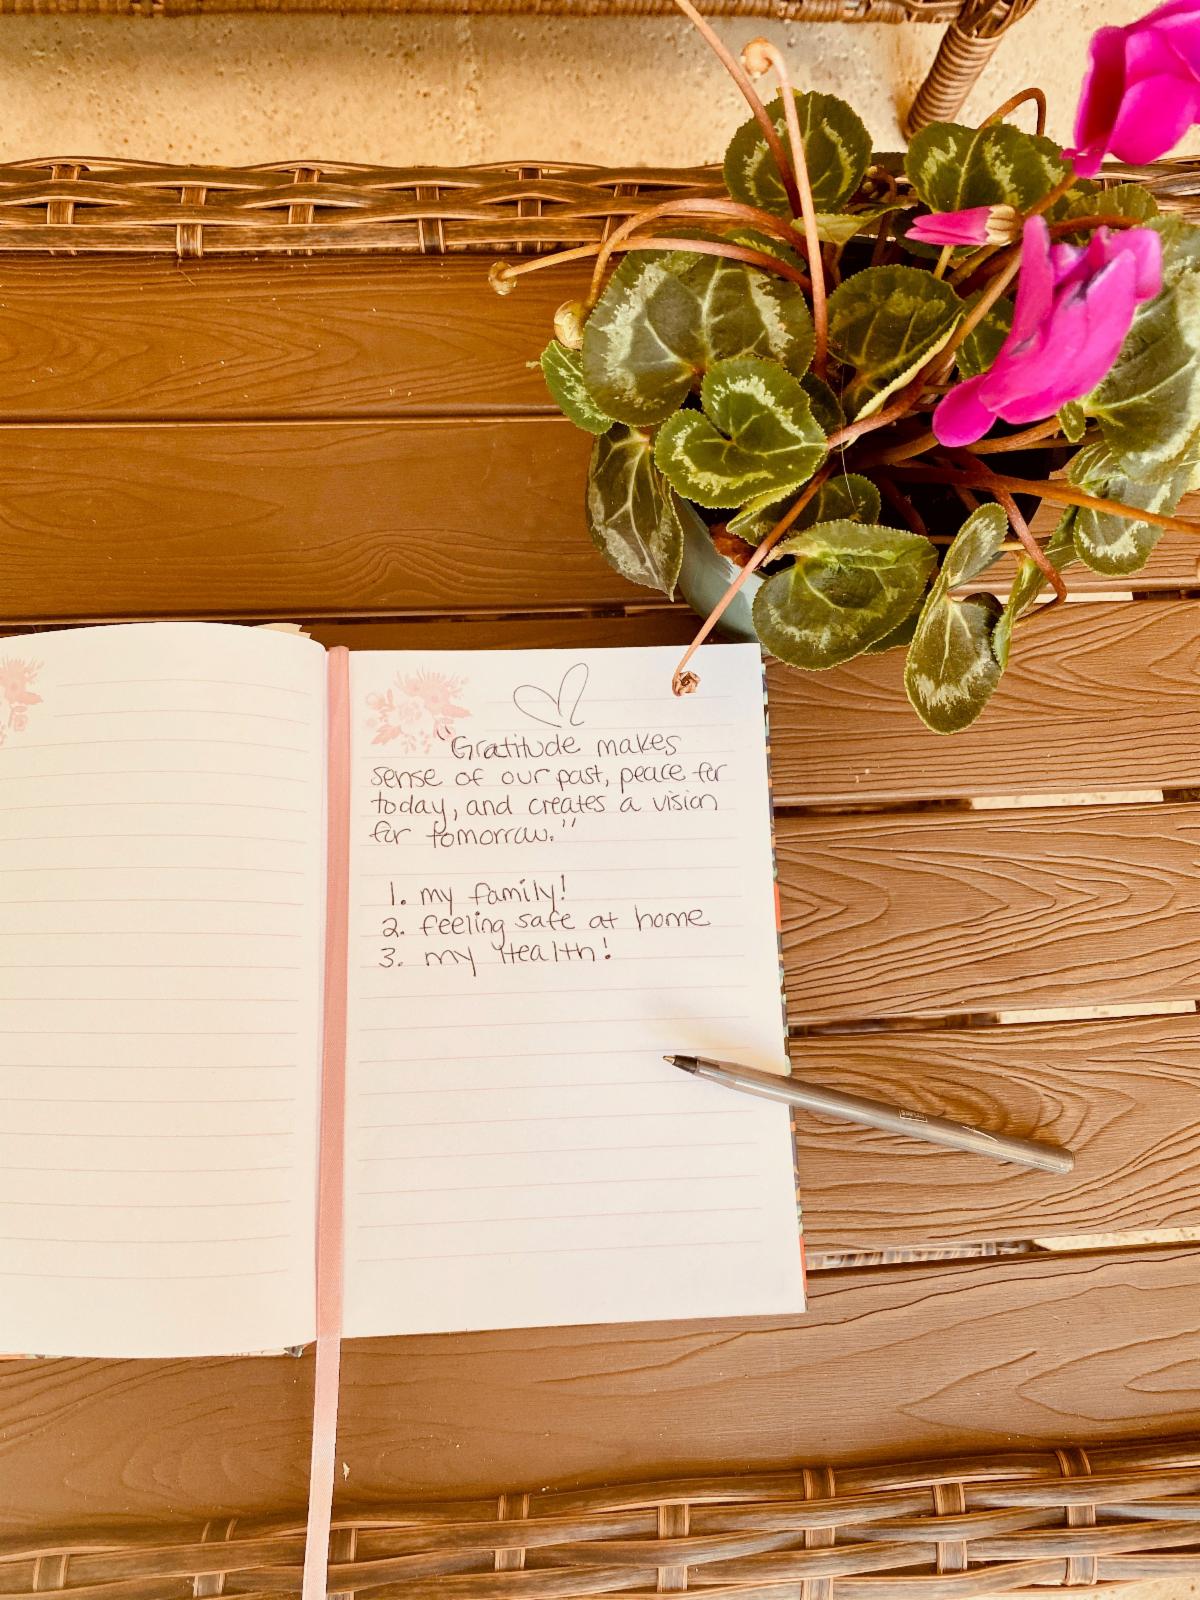 "Gratitude makes
sense of our past, peace for
today, and creates a vision
for tomorrow."
1. my family!
2. feeling safe at home
3. my Health!